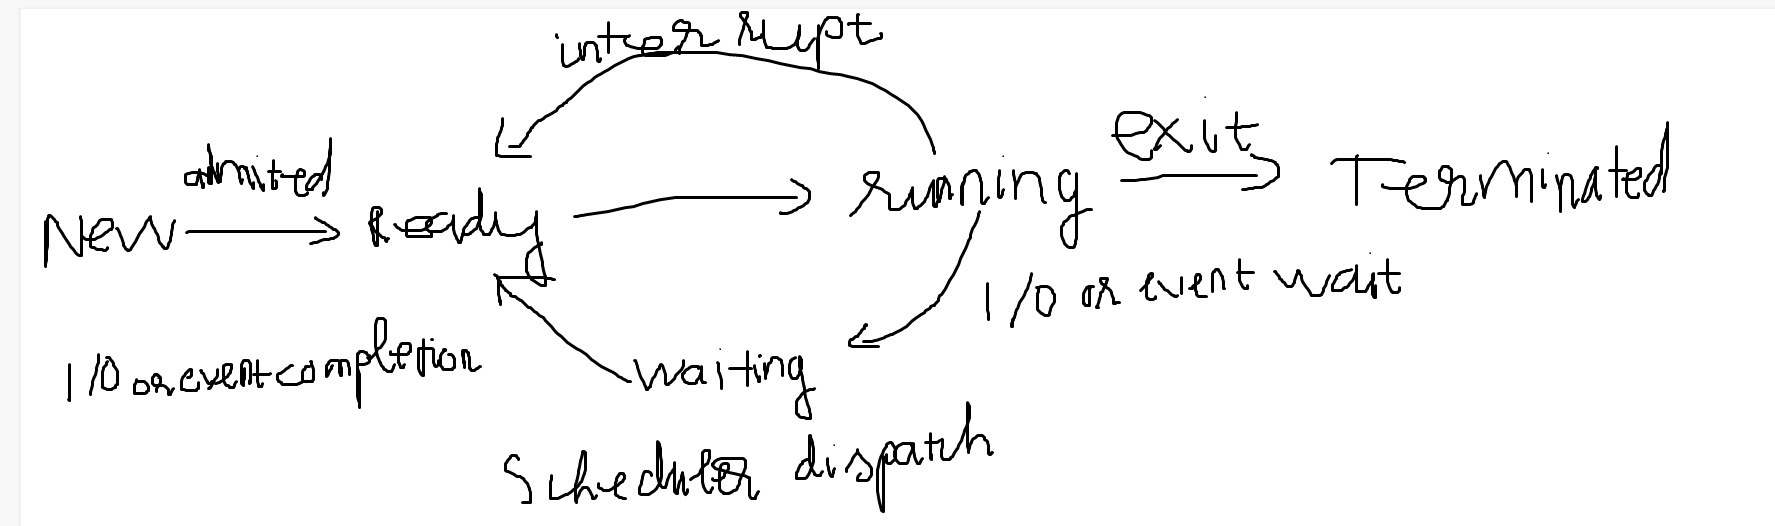 interrupt
exit
admited
New Ready running Terminated
I/O or event wait
I/O or event completion
waiting
Scheduler dispatch